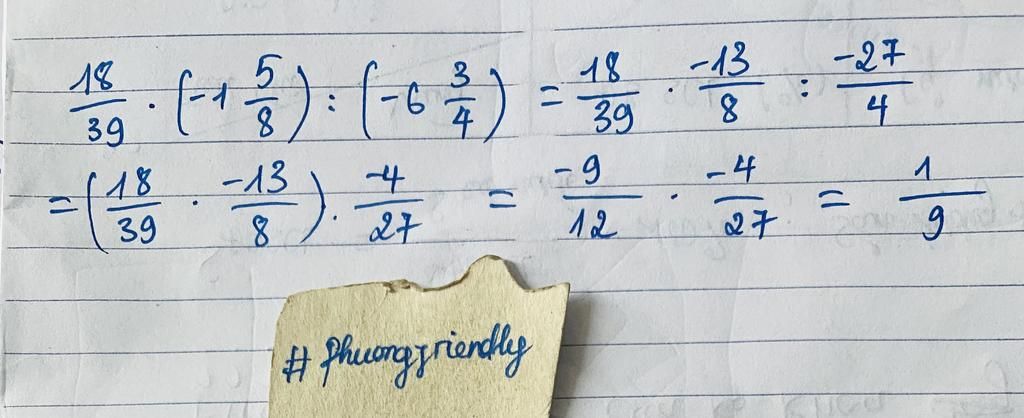 18/39 . (-1 5/8) : (-6 3/4) = 18/39 . -13/8 : -27/4
= (18/39 . -13/8) . -4/27 = -9/12 . -4/27 = 1/9
# phuongfriendly